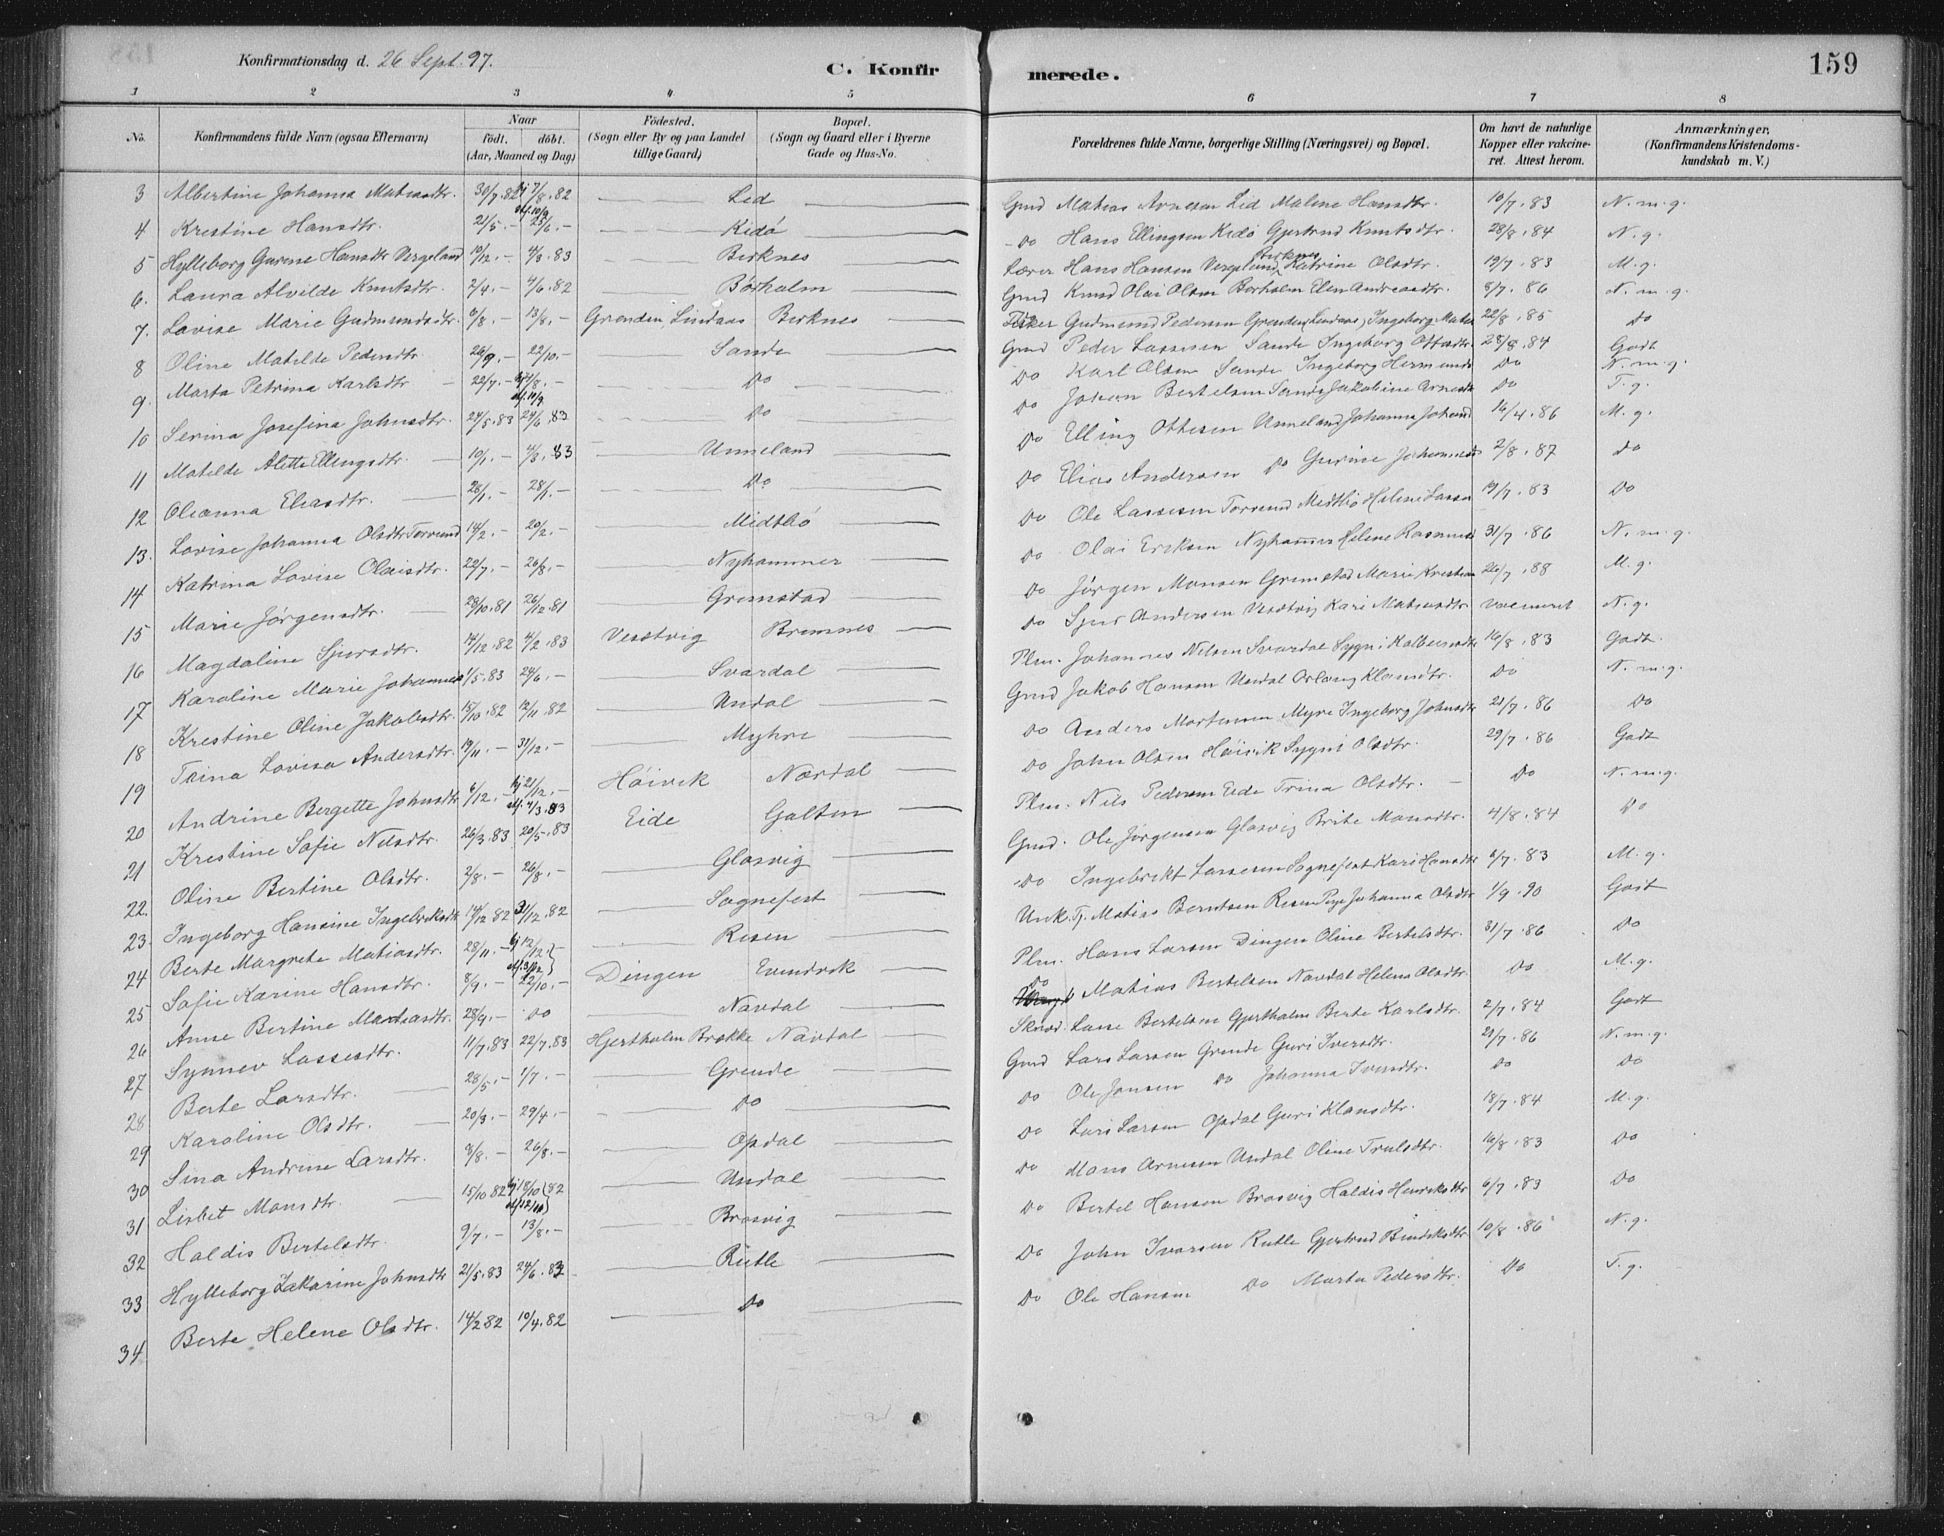 Konfirmationsdag d. 26 Sept. 97.
C. Konfirmerede.
159
1 2 3 4 5 6 7 8
No. Konfirmandens fulde Navn (ogsaa Efternavn) Naar födt. döbt. (Aar, Maaned og Dag) Födested. (Sogn eller By og paa Landet tillige Gaard) Bopæl. (Sogn og Gaard eller i Byerne Gade og Hus-No. Forældrenes fulde Navne, borgerlige Stilling (Næringsvei) og Bopæl. Om havt de naturlige Kopper eller vakcineret. Attest herom. Anmærkninger, (Konfirmandens Kristendomskundskab m. V.)
3 Albertine Johanna Matiasdtr. 30/7.82 hj 7/8.82 Lid Gmd Matias Arnesen Lid Malene Hansdtr. 10/7.83 N.m.g.
4 Kristine Hansdtr. 21/5.- 25/6.- Kidö Do Hans Ellingsen Kidö Gjertrud Knutsdtr. 28/8.84 N.g.
5 Hylleborg Gurene Hansdtr Vergeland 10/12.- 4/3.83 Birknes Lærer Hans Hansen Vergeland Birknes Katrine Olsdtr. 19/7.83 M.g.
6. Laura Alvilde Knutsdtr. 2/4.- 4/6.82 Börholm Gmd Knud Olai Olsen Börholm Elen Andreasdtr. 8/7.86 N.m.g.
7. Lovise Marie Gudmundsdtr. 6/8.- 13/8.- Grønden Lindaas Birknes Gudmund Pedersen Grønden, Lindaas, Ingeborg 22/8.85 do
8 Oline Matilde Pedersdtr. 26/9.- 22/10.- Sande Gmd Peder Lassesen Sande Ingeborg Ottesdtr. 28/8.84 Godt
9. Marta Petrina Karlsdtr 22/7.- Do Do Karl Olsen Sande Ingeborg Do N.m.g.
10 Serina Josefina Johnsdtr. 24/5.83 24/6.83 Do Do Johan Bertelsen Sande Jakobine Do T.g.
11 Matilde Alette Ellingsdtr. 10/1.- 4/3.83 Unneland Do Elling Ottesen Unneland Johanna 14/4.86 M.g.
12 Oleanna Eliasdtr. 28/1.- 28/1.- Do Do Elias Andersen Do Gurine 2/8.87 do
13. Lovise Johanna Olsdtr Torsund 14/2.- 20/2.- Midtbö Do Ole Lassesen Torsund Midtbö Helene 19/7.83 Do
14 Katrina Lovise Olaisdtr. 22/7.- 26/8.- Nyhammer Do Olai Eriksen Nyhammer Helene 31/7.86 N.m.g.
15 Marie Jörgensdtr. 28/10.81 26/12.81 Grimstad Do Jörgen Monsen Grimstad Marie 26/7.88 M.g.
16 Magdaline Sjursdtr. 14/12.82 4/2.83 Vesetvig Bremnes Do Sjur Andersen Vesetvig Kari Matiasdtr. N.g.
17 Karoline Marie 1/5.83 24/6.- Svardal Plm. Johannes Nilsen Svardal 16/8.83 Godt.
18 Kristine Oline Jakobsdtr. 15/10.82 12/11.82 Undal Gmd Jakob Hansen Undal Klausdtr. Do N.m.g.
19 Trina Lovisa Andersdtr. 19/11.- 31/12.- Myhre Do Anders Mortensen Myre Ingeborg Johnsdtr 21/7.86 Do
20 Andrine Bergette Johnsdtr 6/12.- hj 21/12.- Höivik Nordal Do John Olsen Höivik Sygni Olsdtr. 29/7.86 Godt
21 Kristine Sofie Nilsdtr. 26/3.83 20/5.83 Eide Galten Plm. Nils Pedersen Eide Trina Olsdtr. Do N.m.g.
22. Oline Bertine Olsdtr. 2/8.- 26/8.- Glosvig Gmd. Ole Jörgensen Glosvig Brite Monsdtr. 4/8.84 Do
23. Ingeborg Hansine Ingebrektsdtr 14/12.82 31/12.82 Sognefest Do Ingebrekt Lassesen Sognefest Kari Hansdtr 6/7.83 M.g.
24 Berte Margrete Matiasdtr. 28/11.- hj 12/12. Risen Matias Berntsen Risen Johanna Olsdtr 1/9.90 Godt
25 Sofie Karine Hansdtr. 8/9.- 22/10.- Dingen Evindvik Plm. Hans Larsen Dingen Oline Bertelsdtr. 31/7.86 Do
26 Anne Bertine Matiasdtr. 28/9.- Do Navdal Do Matias Bertelsen Navdal Helene Olsdtr. Do M.g.
27 Synnev Lassesdtr. 11/7.83 22/7.83 Hjertholm Brække Navdal Lasse Bertelsen Gjertholm Berte Karlsdtr. 2/7.84 Godt
28 Berte Larsdtr. 28/5.- 1/7.- Grende Gmd Lars Larsen Grende Guri Iversdtr. 21/7.86 N.m.g.
29 Karoline Olsdtr. 20/3.- 29/4.- Do Do Ole Jonsen Do Johanna Iversdtr. Do Do
30 Sina Andrine Larsdtr. 3/8.- 26/8.- Opdal Do Lars Larsen Opdal Guri Klausdtr. 18/7.84 M.g.
31 Lisbet Monsdtr. 15/10.82 hj 18/10 82 Undal Do Mons Arnesen Undal Oline Trulsdtr. 16/8.83 Do
32 Haldis Bertelsdtr. 9/7.- 13/8.- Brosvig Do Bertel Hansen Brosvig Haldis Henriksdtr 6/7.83 Do
33 Hylleborg Zakarine Johnsdtr 21/5.83 24/6.83 Rutle Do John Ivarsen Rutle Gjertrud 10/8.86 N.g.
34 Berte Helene Olsdtr. 14/2.82 10/4.82 Do Do Ole Hansen Do Marta Pedersdtr. Do T.g.